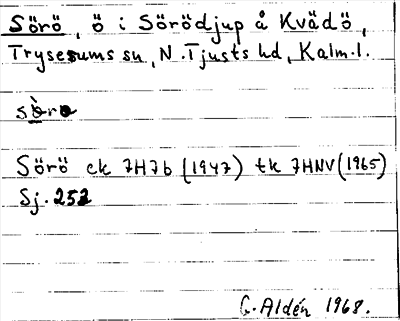 Sörö, ö i Sörödjup å Kvädö,
Tryserums sn, N. Tjusts hd, Kalm. l.
sö̀rø
Sörö ek 7H7b (1947) tk 7HNV (1965)
Sj. 252
G. Aldén 1968.